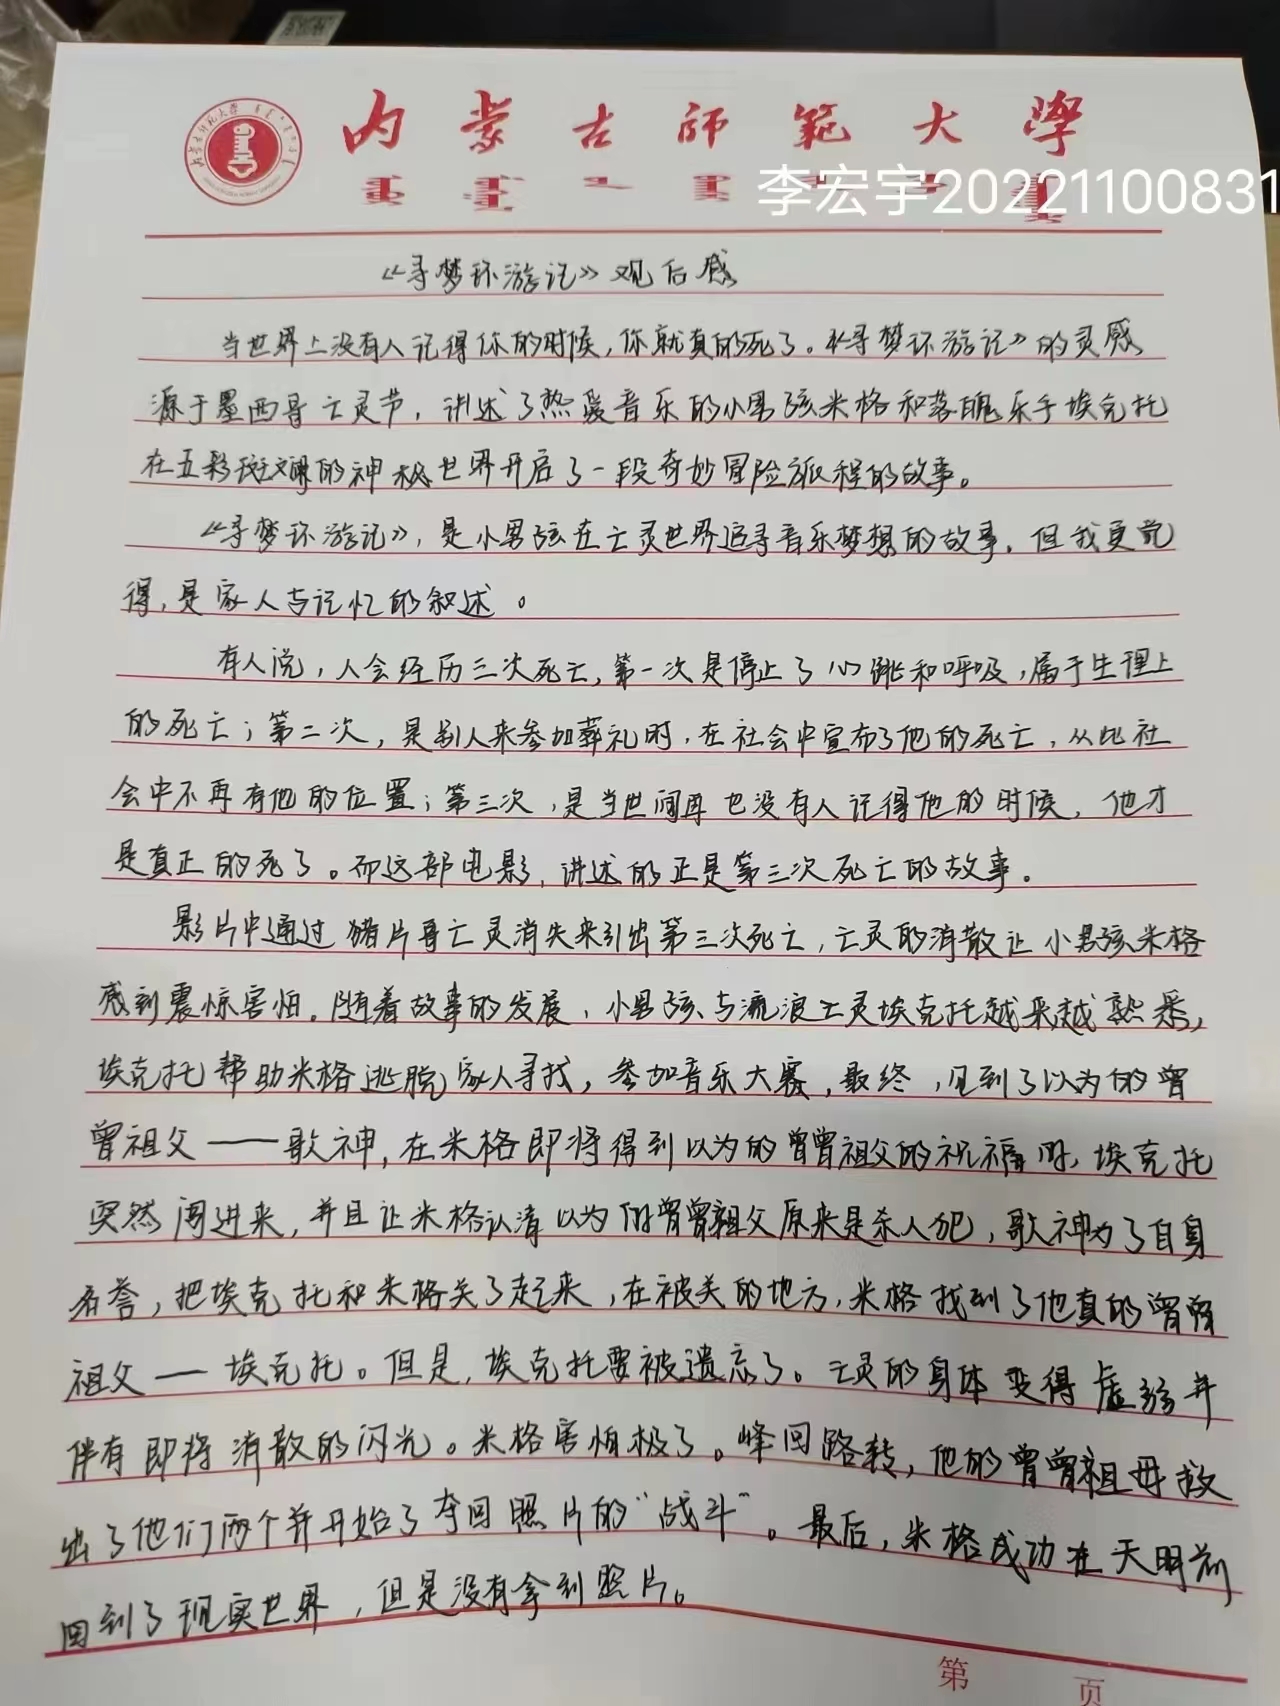 内蒙古师范大学
李宏宇20221100831
《寻梦环游记》观后感
当世界上没有人记得你的时候，你就真的死了。《寻梦环游记》的灵感
源于墨西哥亡灵节，讲述了热爱音乐的小男孩米格和落魄乐手埃克托
在五彩斑斓的神秘世界开启了一段奇妙冒险旅程的故事。
《寻梦环游记》，是小男孩在亡灵世界追寻音乐梦想的故事，但我更觉
得，是家人与记忆的叙述。
有人说，人会经历三次死亡，第一次是停止了心跳和呼吸，属于生理上
的死亡；第二次，是别人来参加葬礼时，在社会中宣布了他的死亡，从此社
会中不再有他的位置；第三次，是当世间再也没有人记得他的时候，他才
是真正的死了。而这部电影，讲述的正是第三次死亡的故事。
影片中通过猪片哥亡灵消失来引出第三次死亡，亡灵的消散让小男孩米格
感到震惊害怕。随着故事的发展，小男孩与流浪亡灵埃克托越来越熟悉，
埃克托帮助米格逃脱家人寻找，参加音乐大赛，最终，见到了以为的曾
曾祖父——歌神，在米格即将得到以为的曾曾祖父的祝福时，埃克托
突然闯进来，并且让米格认清以为的曾曾祖父原来是杀人犯，歌神为了自身
名誉，把埃克托和米格关了起来，在被关的地方，米格找到了他真的曾曾
祖父——埃克托。但是，埃克托要被遗忘了。亡灵的身体变得虚弱并
伴有即将消散的闪光。米格害怕极了。峰回路转，他的曾曾祖母救
出了他们两个并开始了夺回照片的“战斗”。最后，米格成功在天明前
回到了现实世界，但是没有拿到照片。
第 页